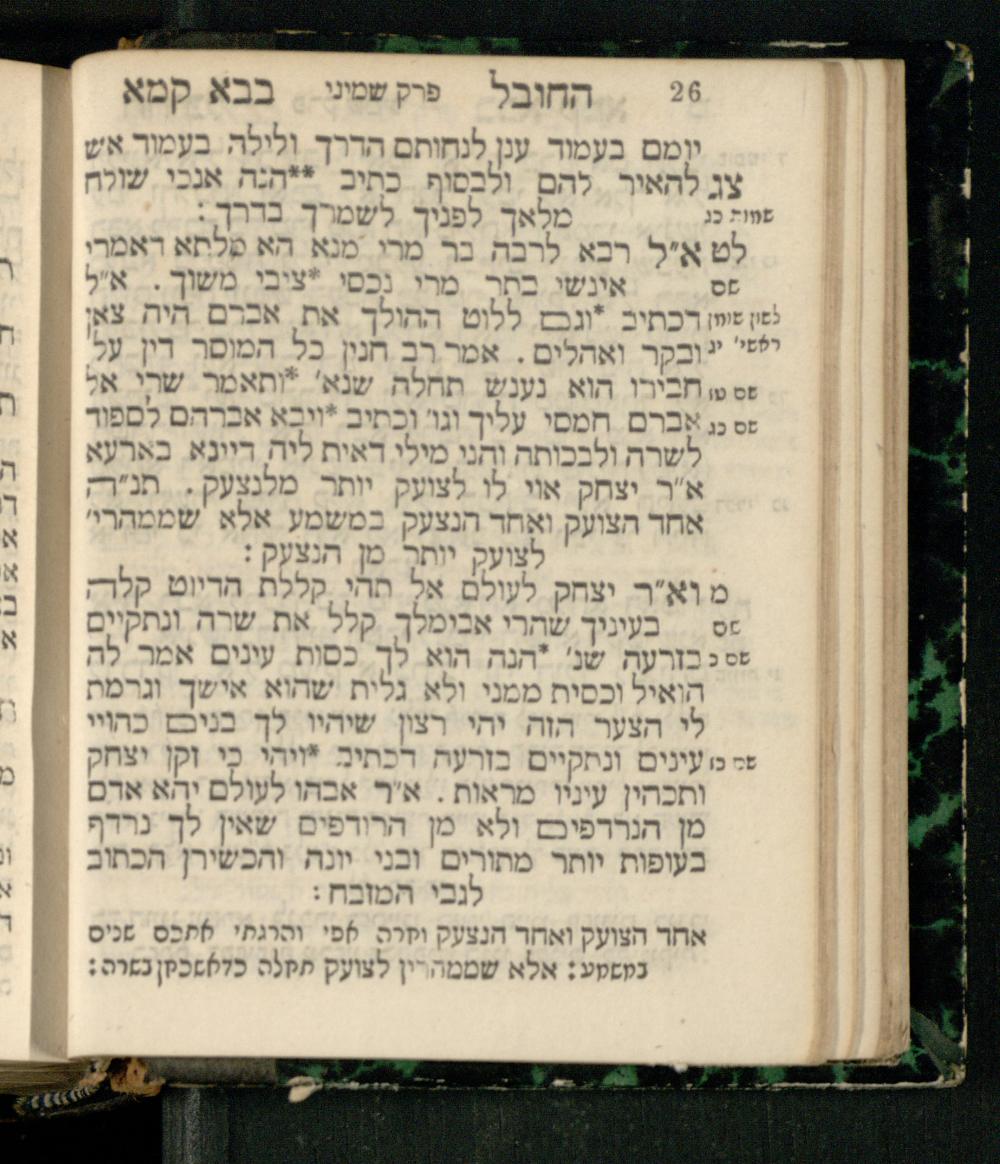 26 החובל פרק שמיני בבא קמא
יומם בעמוד ענן לנחותם הדרך ולילה בעמוד אש
צג להאיר להם ולבסוף כתיב **הנה אנכי שולח
שמות כג מלאך לפניך לשמרך בדרך :
לט א״ל רבא לרבה בר מרי מנא הא מלתא דאמרי
שם אינשי בתר מרי נכסי *ציבי משוך . א״ל
לשון שומן דכתיב *וגם ללוט ההולך את אברם היה צאן
ראשי' יג ובקר ואהלים . אמר רב חנין כל המוסר דין על
שם טז חבירו הוא נענש תחלה שנא' *ותאמר שרי אל
שם כג אברם חמסי עליך וגו' וכתיב *ויבא אברהם לספוד
לשרה ולבכותה והני מילי דאית ליה דיינא בארעא
א״ר יצחק אוי לו לצועק יותר מלנצעק . תנ״ה
אחד הצועק ואחד הנצעק במשמע אלא שממהרי'
לצועק יותר מן הנצעק :
מ וא״ר יצחק לעולם אל תהי קללת הדיוט קלה
שם בעיניך שהרי אבימלך קלל את שרה ונתקיים
שם כ בזרעה שנ' *הנה הוא לך כסות עינים אמר לה
הואיל וכסית ממני ולא גלית שהוא אישך וגרמת
לי הצער הזה יהי רצון שיהיו לך בנים כהויי
שם כז עינים ונתקיים בזרעה דכתיב *ויהי כי זקן יצחק
ותכהין עיניו מראות . א״ר אבהו לעולם יהא אדם
מן הנרדפים ולא מן הרודפים שאין לך נרדף
בעופות יותר מתורים ובני יונה והכשירן הכתוב
לגבי המזבח :
אחד הצועק ואחד הנצעק וחרה אפי והרגתי אתכם שנים
במשמע : אלא שממהרין לצועק תחלה כדאשכחן בשרה :